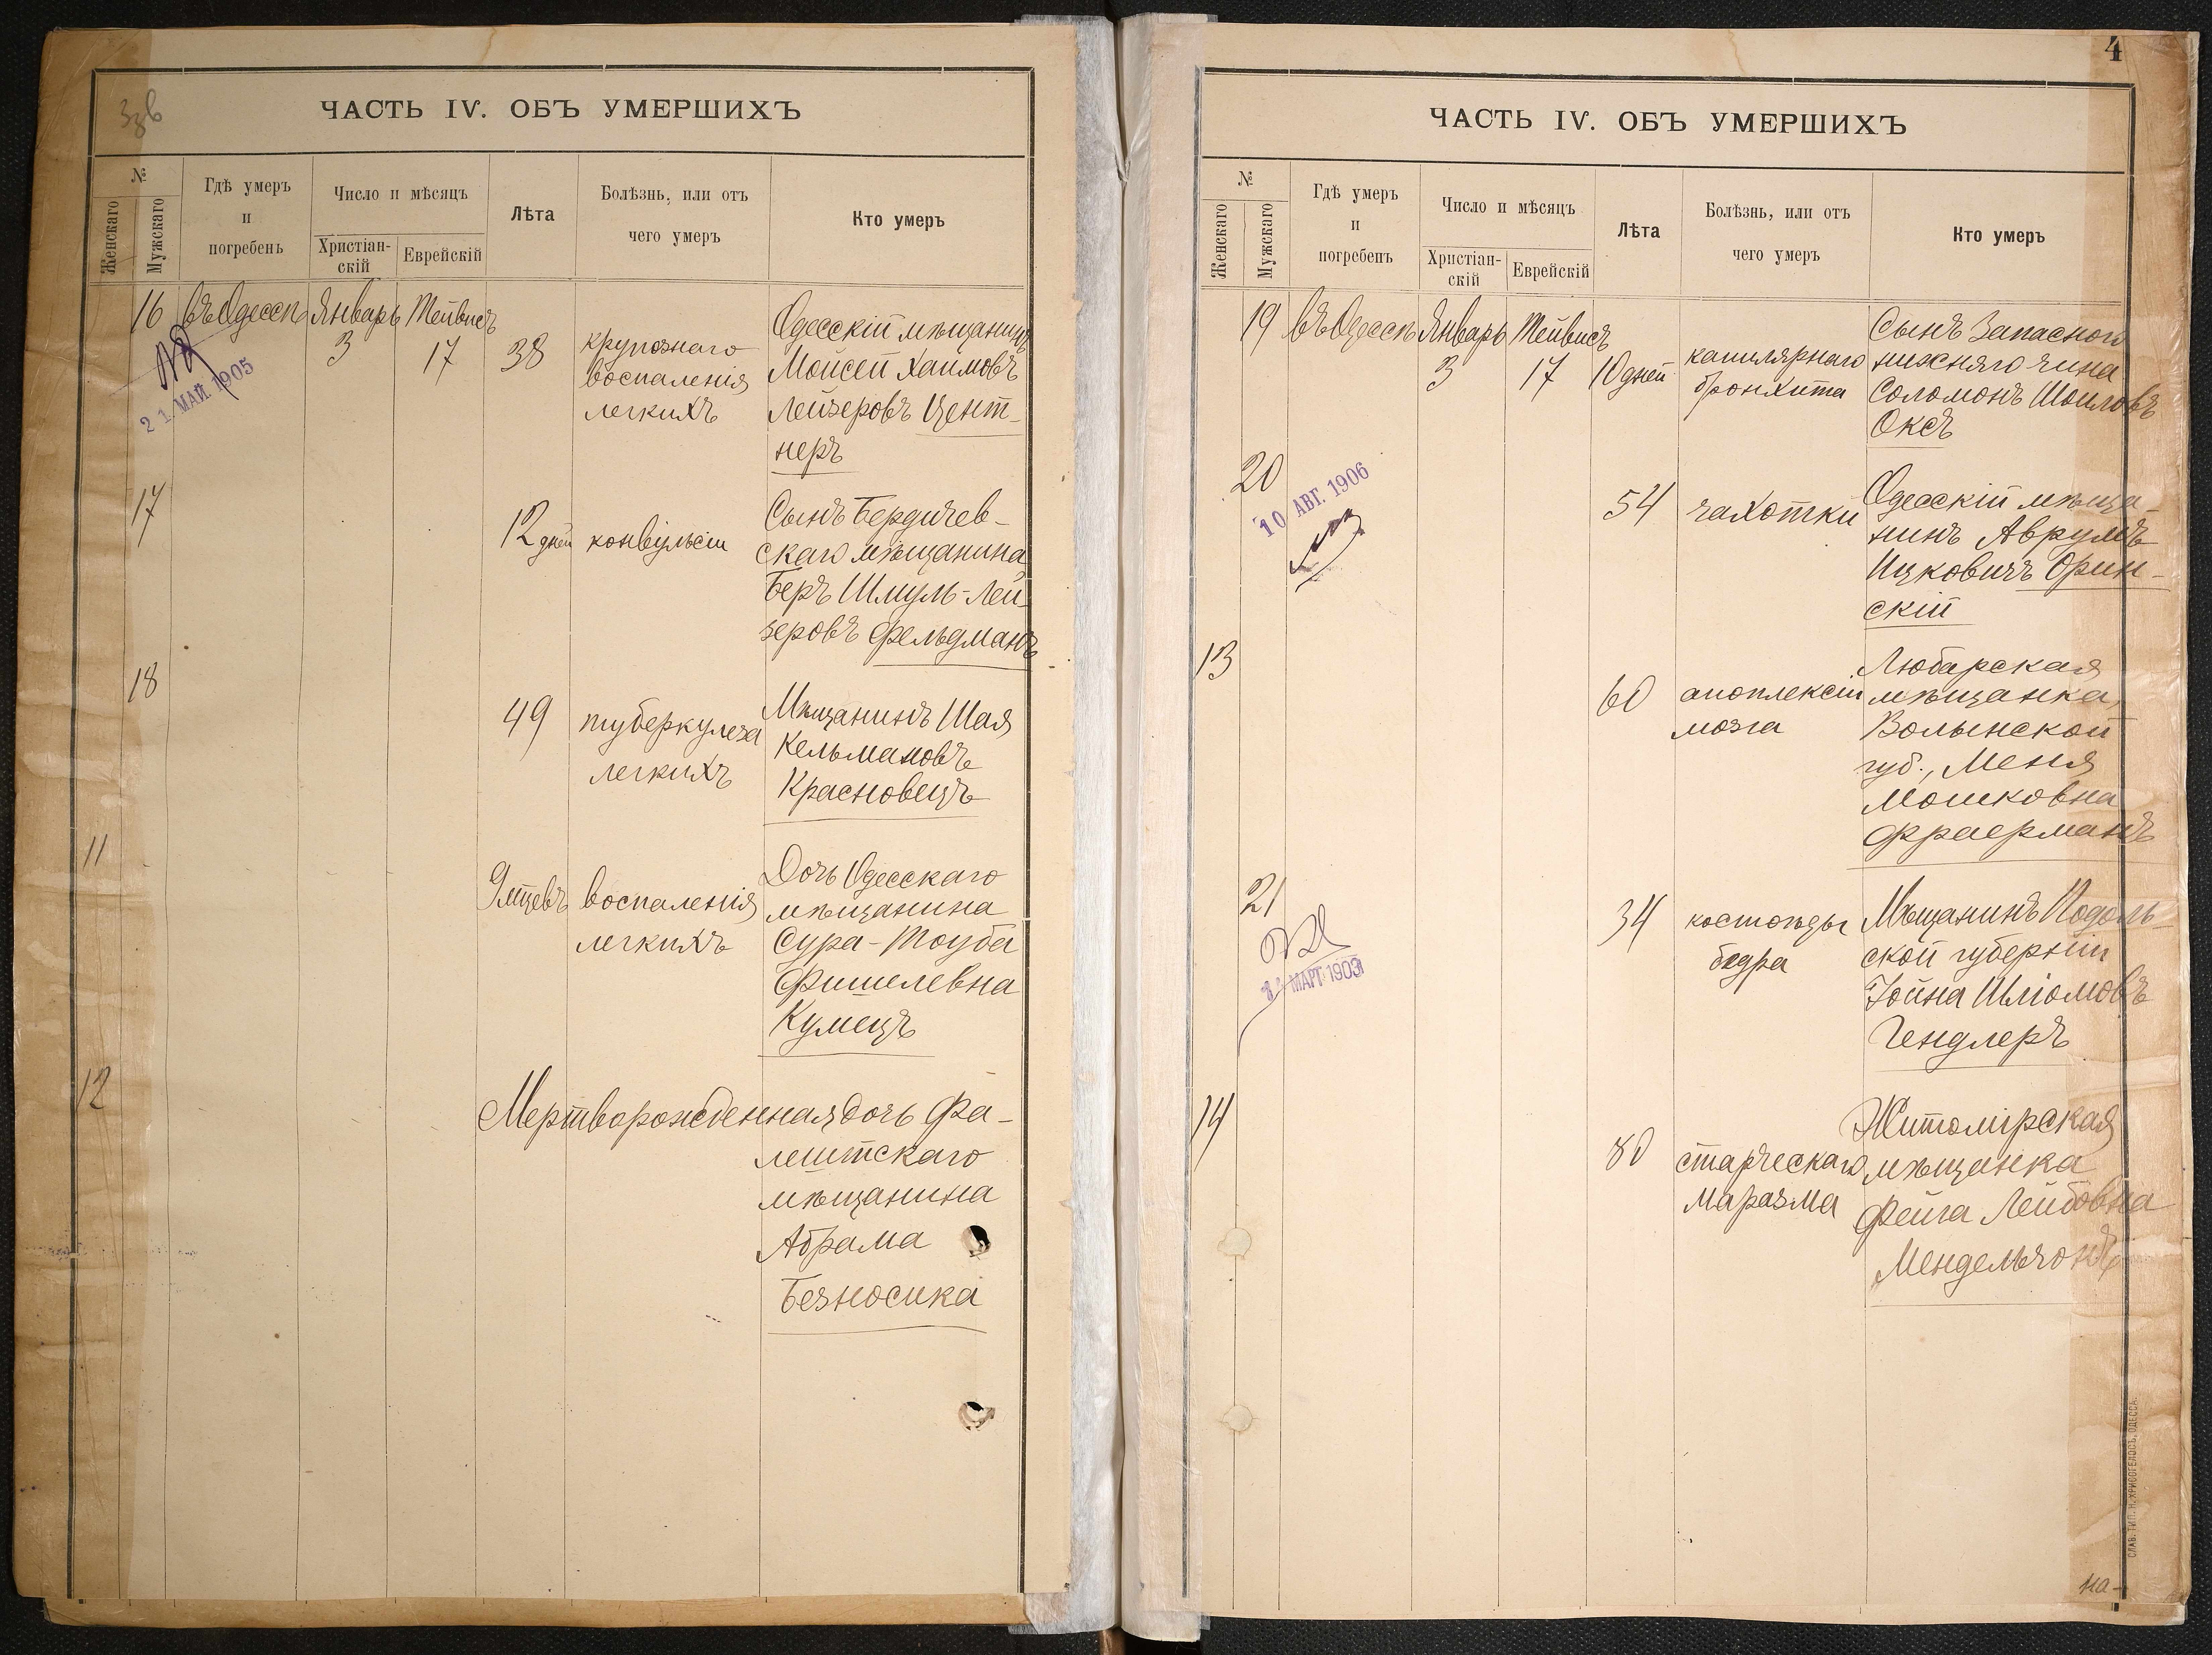 Ззв
ЧАСТЬ IV. ОБЪ УМЕРШИХЪ
№
Женскаго
Мужскаго
Гдѣ умеръ
и
погребенъ
Число и мѣсяцъ
Христіан-
скій
Еврейскій
Лѣта
Болѣзнь, или отъ
чего умеръ
Кто умеръ
16
въ Одессѣ
Январь
3
Тейвисъ
17
38
крупознаго
воспаленія
легкихъ
Одесскій мѣщанинъ
Мойсей Хаимовъ
Лейзеровъ Цент-
неръ
21 МАЙ 1905
17
12 дней
конвульсіи
Сынъ Бердичев-
скаго мѣщанина
Беръ Шмуль-Лей-
зеровъ Фельдманъ
18
49
туберкулеза
легкихъ
Мѣщанинъ Шая
Кельмановъ
Красновецъ
11
9 мцевъ
воспаленія
легкихъ
Дочь Одесскаго
мѣщанина
Сура-Тоуба
Фишелевна
Кумецъ
12
Мертворожденная дочь Фа-
лештскаго
мѣщанина
Абрама
Безносика
4
ЧАСТЬ IV. ОБЪ УМЕРШИХЪ
№
Женскаго
Мужскаго
Гдѣ умеръ
и
погребенъ
Число и мѣсяцъ
Христіан-
скій
Еврейскій
Лѣта
Болѣзнь, или отъ
чего умеръ
Кто умеръ
19
въ Одессѣ
Январь
3
Тейвисъ
17
10 дней
капилярнаго
бронхита
Сынъ Запасного
нижняго чина
Соломонъ Шоиловъ
Оксъ
20
10 АВГ. 1906
54
чахотки
Одесскій мѣща-
нинъ Аврумъ
Ицковичъ Орин-
скій
13
60
апоплексіи
мозга
Любарская
мѣщанка,
Волынской
губ., Меня
Мошковна
Фраерманъ
21
МАРТ 1903
34
костоѣды
бедра
Мѣщанинъ Подоль-
ской губерніи
Іойна Шліомовъ
Гендлеръ
14
80
старческаго
маразма
Житомірская
мѣщанка
Фейга Лейбовна
Мендельзонъ
СЛАВ. ТИП. Н. ХРИСОГЕЛОСЪ, ОДЕССА.
на-